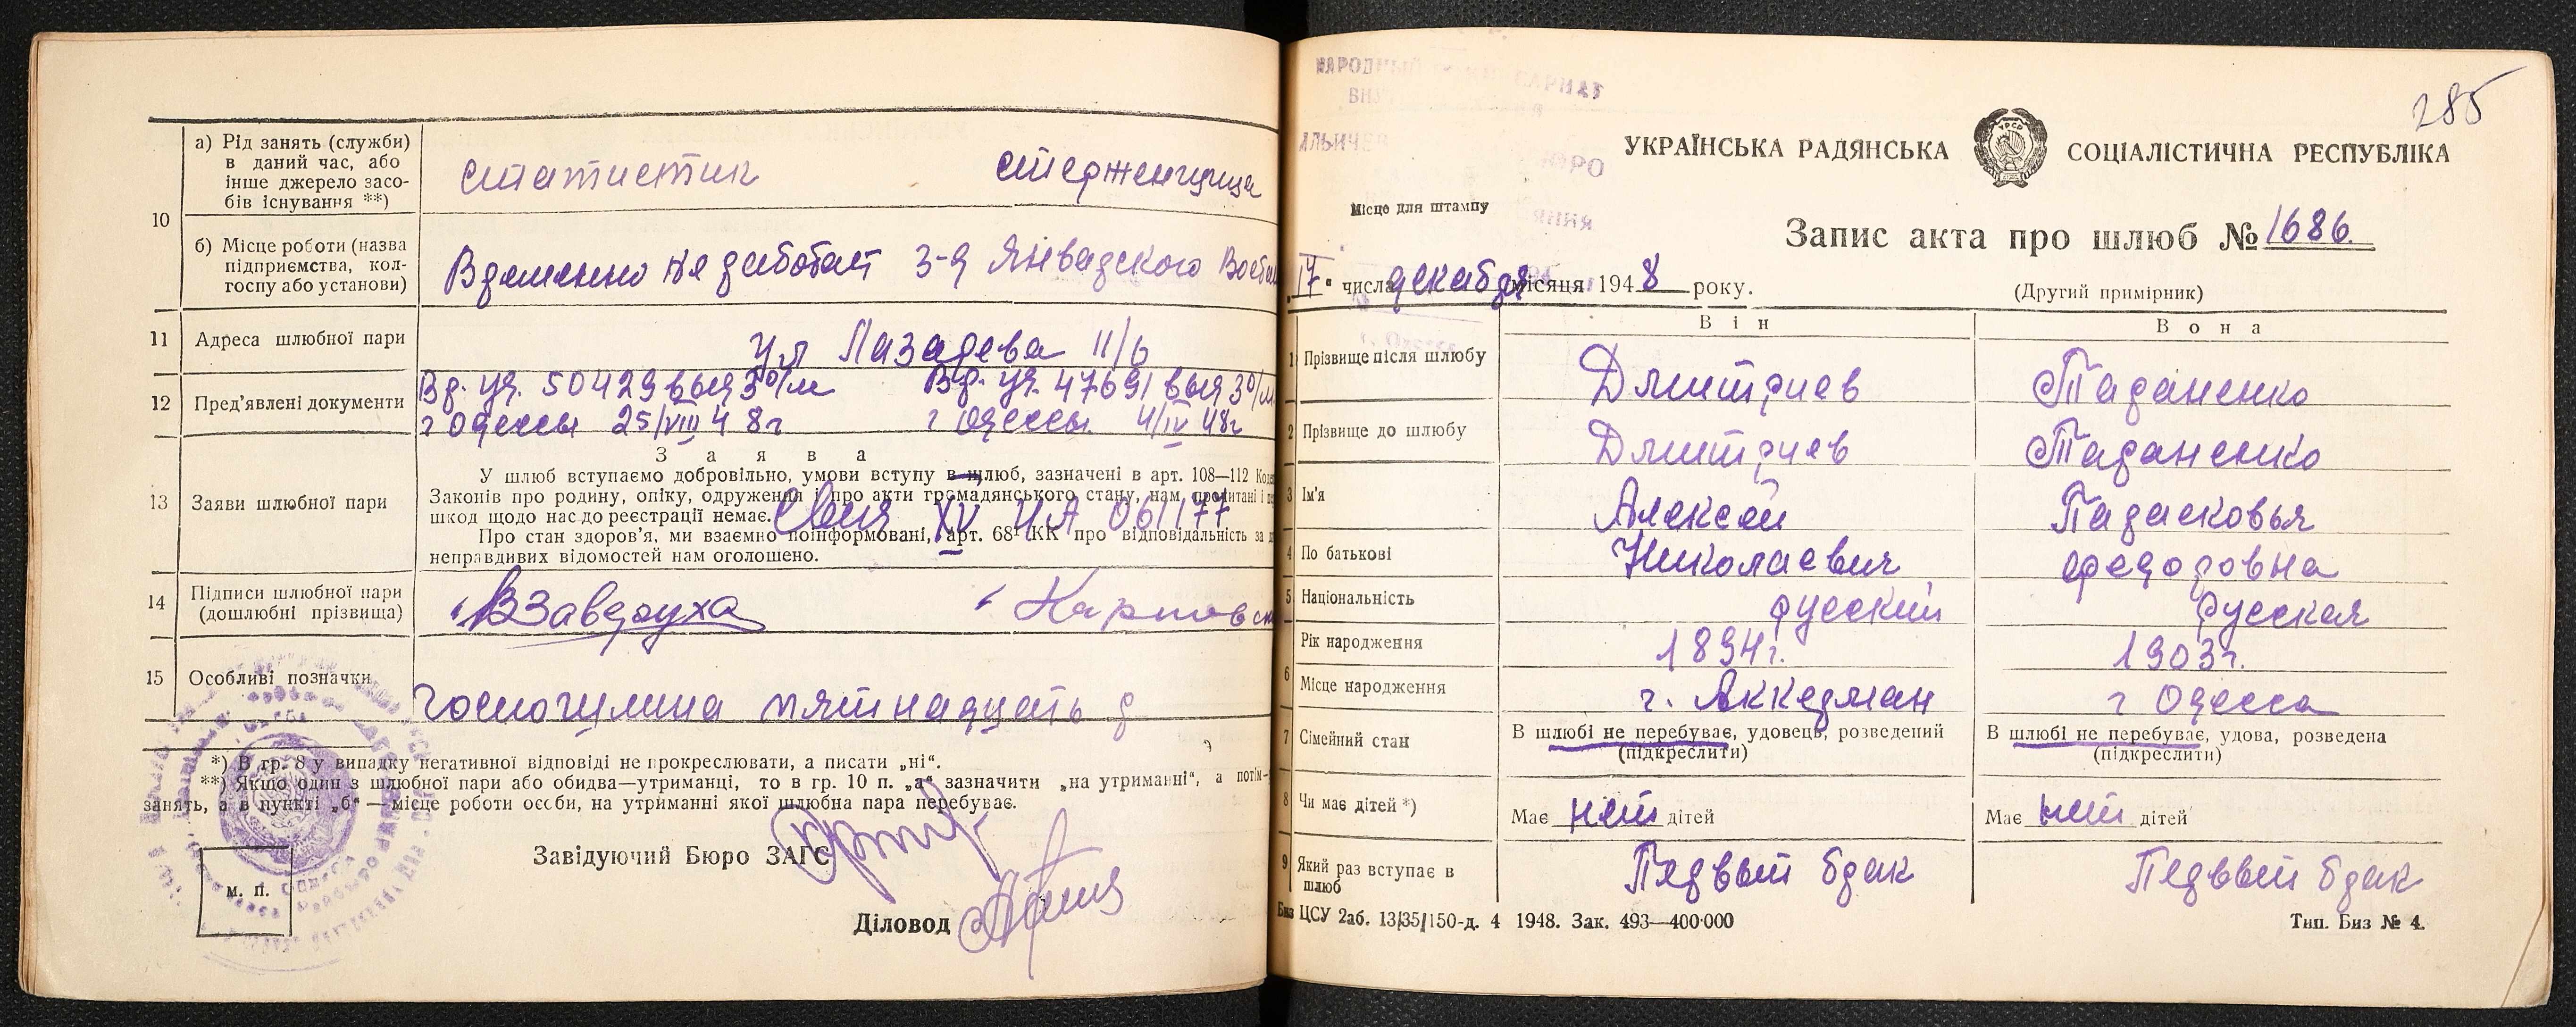 а) Рід занять (служби)
в даний час, або
інше джерело засо-
бів існування **)
статистик стерженщица
10
б) Місце роботи (назва
підприємства, кол-
госпу або установи)
Временно не работает 3-я Январского Восстан
11 Адреса шлюбної пари
ул Лазарева 11/6
12 Пред'явлені документи
Вр. уд. 50429 выд 3 о/м Вр. уд. 47691 выд 3 о/м
г Одессы 25/VIII 48г г Одессы 4/IV 48г
13 Заяви шлюбної пари
З а я в а
У шлюб вступаємо добровільно, умови вступу в шлюб, зазначені в арт. 108—112
Законів про родину, опіку, одруження і про акти громадянського стану, нам прочитані і
шкод щодо нас до реєстрації немає.
XV ЧА 061177
Про стан здоров'я, ми взаємно поінформовані, арт. 68¹ КК про відповідальність за
неправдивих відомостей нам оголошено.
14 Підписи шлюбної пари
(дошлюбні прізвища)
ВЗавгруха Карповс
15 Особливі позначки
госпошлина пятнадцать р
*) В гр. 8 у випадку негативної відповіді не прокреслювати, а писати „ні“.
**) Якщо один з шлюбної пари або обидва—утриманці, то в гр. 10 п. „а“ зазначити „на утриманні“, а потім—
занять, а в пункті „б“ — місце роботи особи, на утриманні якої шлюбна пара перебуває.
Завідуючий Бюро ЗАГС
м. п.
Діловод
285
НАРОДНЫЙ КОМИССАРИАТ
УКРАЇНСЬКА РАДЯНСЬКА СОЦІАЛІСТИЧНА РЕСПУБЛІКА
УРСР
Місце для штампу
Запис акта про шлюб № 1686.
17 числа декабря місяця 1948 року.
(Другий примірник)
В і н В о н а
1 Прізвище після шлюбу Дмитриев Тараненко
2 Прізвище до шлюбу Дмитриев Тараненко
3 Ім'я Алексей Парасковья
4 По батькові Николаевич Федоровна
5 Національність русский русская
6 Рік народження 1894г. 1903г.
Місце народження г. Аккерман г Одесса
7 Сімейний стан
В шлюбі не перебуває, удовець, розведений
(підкреслити)
В шлюбі не перебуває, удова, розведена
(підкреслити)
8 Чи має дітей *) Має нет дітей Має нет дітей
9 Який раз вступає в
шлюб
Первый брак Первый брак
Биз ЦСУ 2аб. 13/35/150-д. 4 1948. Зак. 493—400·000 Тип. Биз № 4.